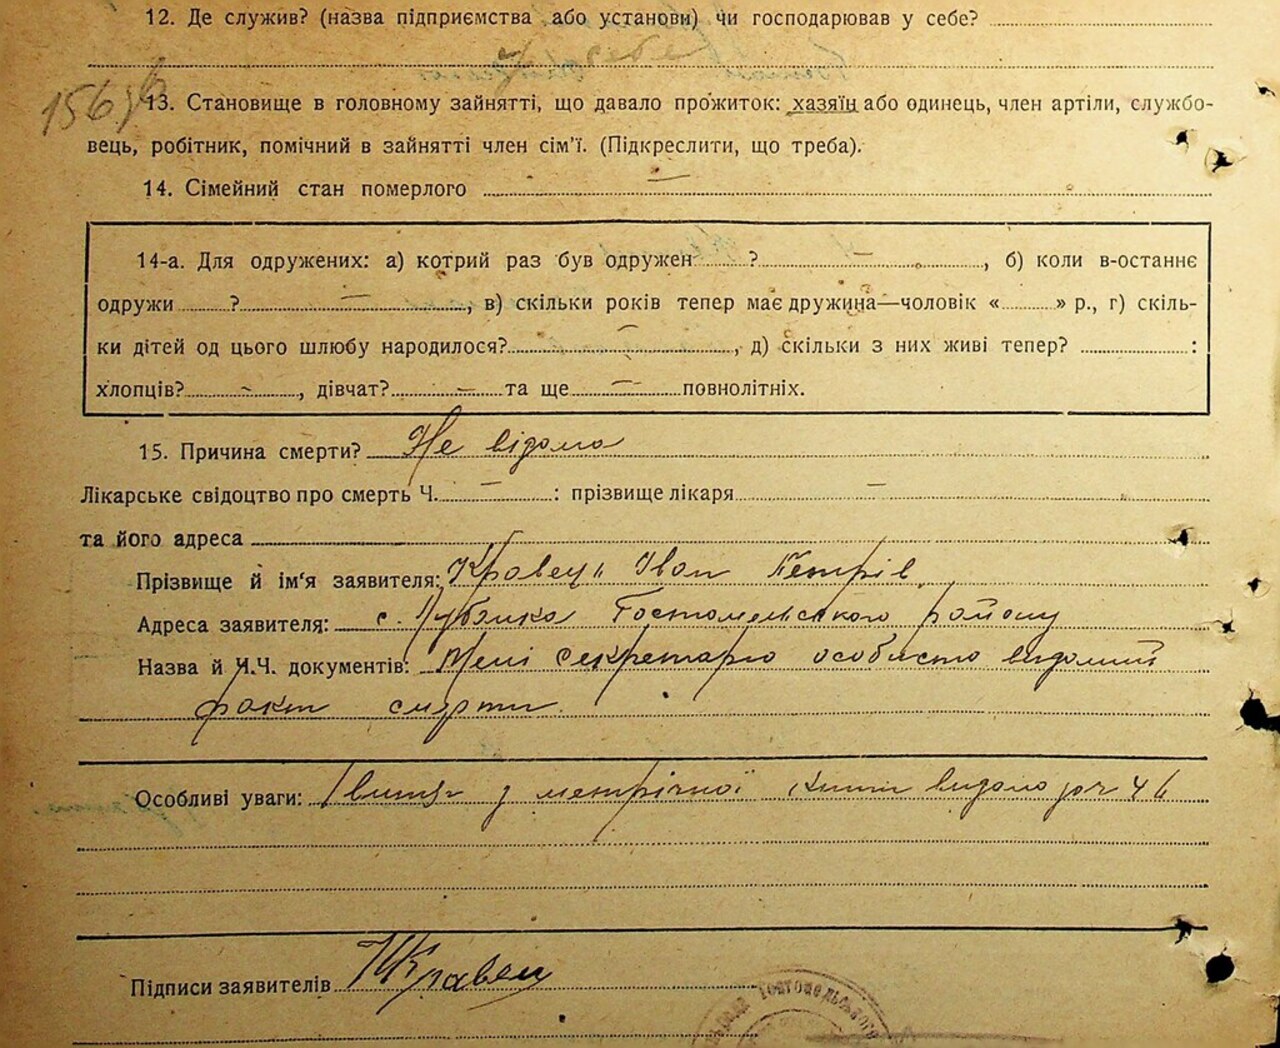 12. Де служив? (назва підприємства або установи) чи господарював у себе?
у себе
156
13. Становище в головному зайнятті, що давало прожиток: хазяїн або одинець, член артіли, службо-
вець, робітник, помічний в зайнятті член сім'ї. (Підкреслити, що треба).
14. Сімейний стан померлого —
14-а. Для одружених: а) котрий раз був одружен ? — , б) коли в-останнє
одружи ? — , в) скільки років тепер має дружина—чоловік « » р., г) скіль-
ки дітей од цього шлюбу народилося? — , д) скільки з них живі тепер? :
хлопців? — , дівчат? — та ще — повнолітніх.
15. Причина смерти? Не відома
Лікарське свідоцтво про смерть Ч. — : прізвище лікаря —
та його адреса
Прізвище й ім'я заявителя: Кравец Іван Петрів
Адреса заявителя: с. Гостомельського району
Назва й Ч.Ч. документів: Мені секретарю особисто видомий
факт смерти
Особливі уваги: з метрічної видано
Підписи заявителів Кравец
Гостомельського